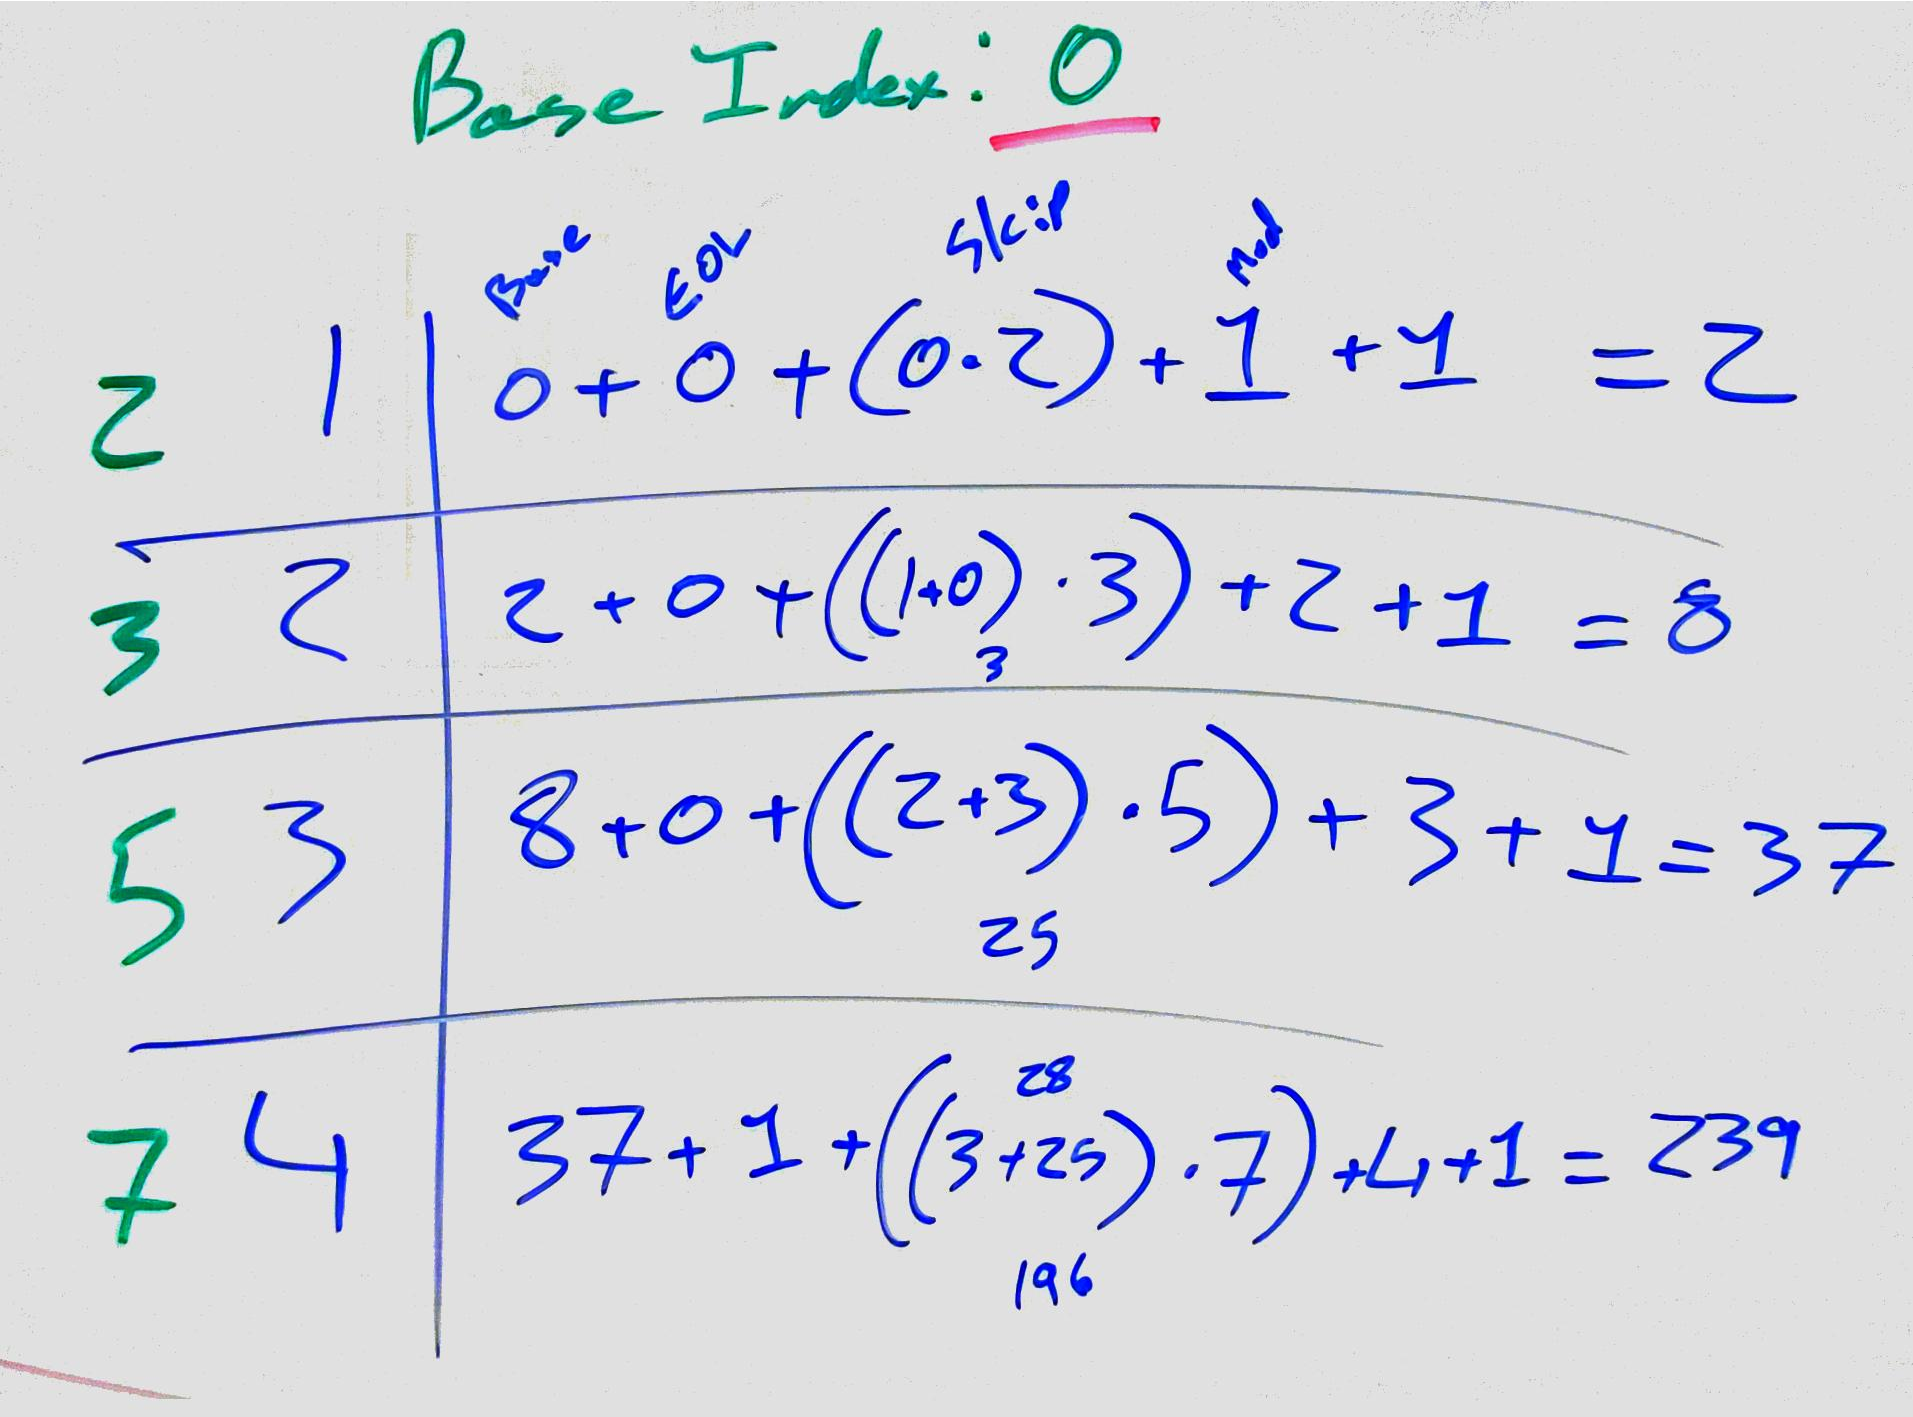 Base Index: 0
Base EOL Skip Mod
2 1 0 + 0 + (0·2) + 1 + 1 = 2
3 2 2 + 0 + ((1+0)·3) + 2 + 1 = 8
3
5 3 8 + 0 + ((2+3)·5) + 3 + 1 = 37
25
28
7 4 37 + 1 + ((3+25)·7) + 4 + 1 = 239
196